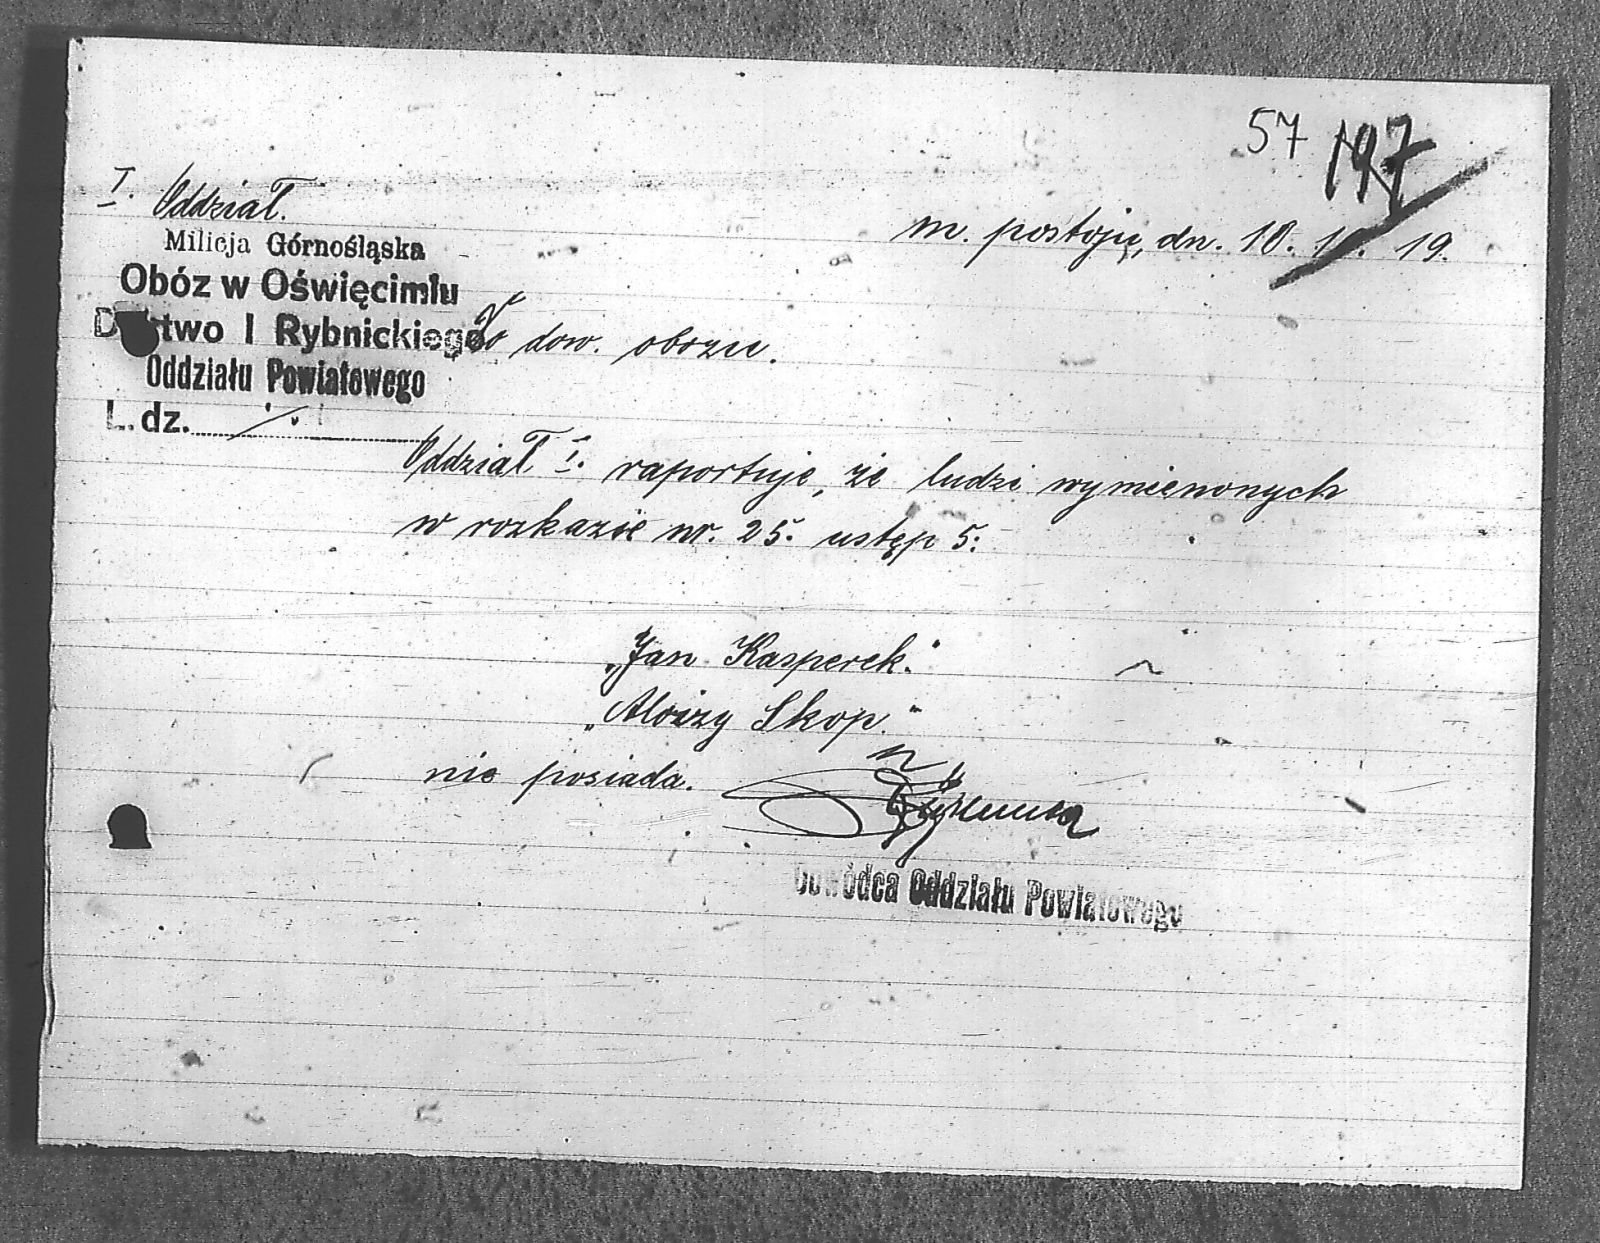 57 197
I. Oddział.
m. postoju, dn. 10. 10. 19.
Milicja Górnośląska
Obóz w Oświęcimiu
D two I Rybnickiego
Oddziału Powiatowego
L. dz.
Do dow. obozu.
Oddział I. raportuje, że ludzi wymienonych
w rozkazie nr. 25. ustęp 5:
„Jan Kasperek."
„Aloizy Skop."
nie posiada.
Dowódca Oddziału Powiatowego